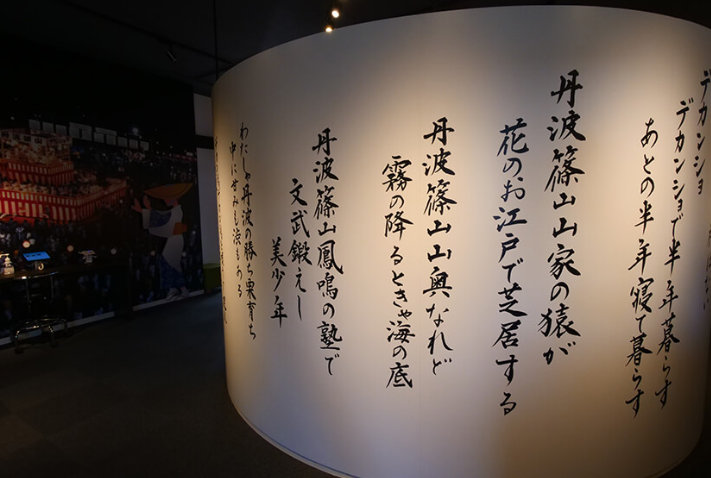 デカンショ
デカンショで半年暮らす
あとの半年寝て暮らす
丹波篠山山家の猿が
花のお江戸で芝居する
丹波篠山山奥なれど
霧の降るときゃ海の底
丹波篠山鳳鳴の塾で
文武鍛えし
美少年
わたしゃ丹波の勝ち栗育ち
中に甘みも渋もある